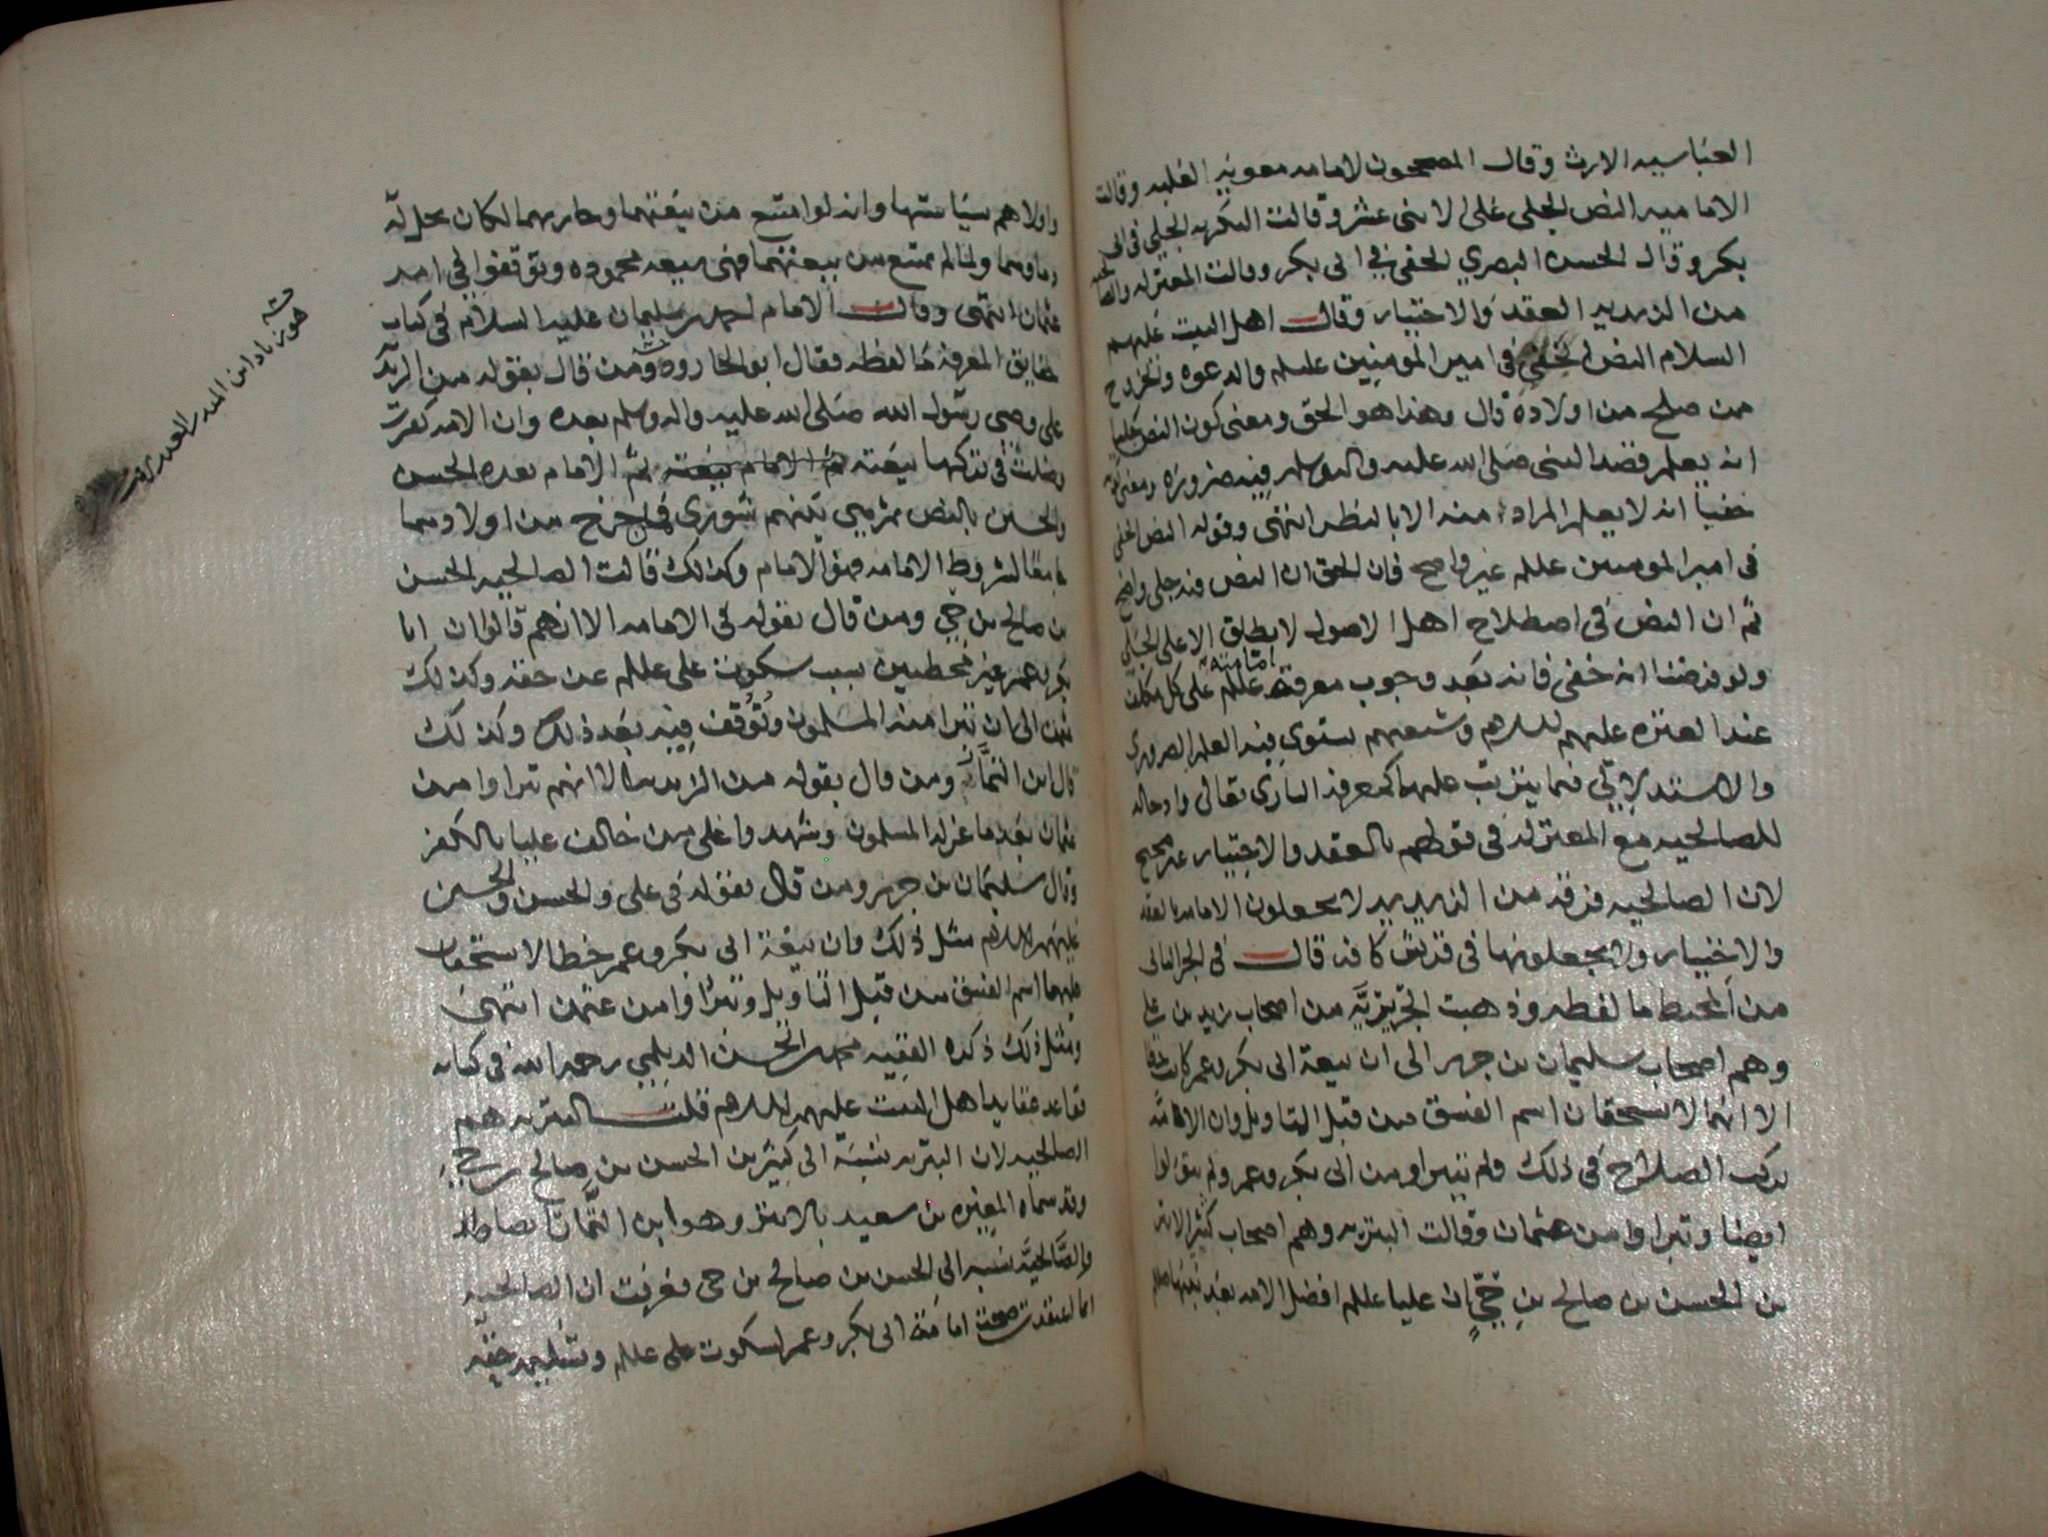 العباسيه الارث وقال المصححون لامامه معويه الغلبه وقالت
الاماميه النص الجلي على الاثنى عشر وقالت البكريه الجلي في ابي
بكر وقال الحسن البصري الخفي في ابي بكر وقالت المعتزله والصالحيه
من الزيديه العقد والاختيار وقال اهل البيت عليهم
السلام النص الخفي في امير المومنين عليلم والدعوه والخروج
ممن صلح من اولاده قال وهذا هو الحق ومعنى كون النص جليا
انه يعلم قصد النبي صلى الله عليه واله وسلم فيه ضرورة ومعنى كونه
خفيا انه لا يعلم المراد منه الا بالنظر انتهى وقوله النص الخفي
في امير المومنين عليلم غير واضح فان الحق ان النص فيه جلي واضح
ثم ان النص في اصطلاح اهل الاصول لا يطلق الا على الجلي
ولو فرضنا انه خفي فانه بعد وجوب معرفة امامته عليلم على كل مكلف
عند العتره عليهم السلام وشيعتهم يستوي فيه العلم الضروري
والاستدلالي فيما يترتب عليهما كمعرفة الباري تعالى وادخاله
للصالحيه مع المعتزله في قولهم بالعقد والاختيار غير صحيح
لان الصالحيه فرقه من الزيديه لا يجعلون الامامه بالعقد
والاختيار ولا يجعلونها في قريش كافه قال في الجزء الثاني
من المحيط ما لفظه وذهبت الجريرية من اصحاب زيد بن علي
وهم اصحاب سليمان بن جرير الى ان بيعة ابي بكر وعمر كانت خطا
الا انهما لا يستحقان اسم الفسق من قبل التاويل وان الامة
تركت الصلاح في ذلك ولم يتبراو من ابي بكر وعمر ولم يتولوا
ايضا وتبراوا من عثمان وقالت البتريه وهم اصحاب كثير الابتر
بن الحسن بن صالح بن حيٍّ ان عليا عليلم افضل الامه بعد نبيها صلم
واولاهم بسياستها وانه لو امتنع من بيعتهما وحاربهما لكان يحل له
دماوهما ولما لم يمتنع من بيعتهما فهي بيعه محموده وتوقفوا في امر
عثمان انتهى وقال الامام احمد بن سليمان عليه السلام في كتاب
حقايق المعرفة ما لفظه فقال ابو الجارود ومن قال بقوله من الزيديه
علي وصي رسول الله صلى الله عليه واله وسلم بعده وان الامه كفرت
وضلت في تركها بيعته ثم الامام بيعته ثم الامام بعده الحسن
والحسين بالنص ثم هي بينهم شورى فمن خرج من اولادهما
جامعا لشروط الامامه فهو الامام وكذلك قالت الصالحيه الحسن
بن صالح بن حي ومن قال بقوله في الامامه الا انهم قالوا ان ابا
بكر وعمر غير مخطيين بسبب سكوت علي عليلم عن حقه وكذلك
عثمن الى ان تبرا منه المسلمون وتُوُقف فيه بعد ذلك وكذلك
قال ابن التمار ومن قال بقوله من الزيديه الا انهم تبراوا من
عثمان بعد ما عزله المسلمون وشهدوا على من خالف عليا بالكفر
وقال سليمان بن جرير ومن قال بقوله في علي والحسن والحسين
عليهم السلام مثل ذلك وان بيعة ابي بكر وعمر خطا لا يستحقان
عليها اسم الفسق من قبل التاويل وتبراوا من عثمن انتهى
ومثل ذلك ذكره الفقيه محمد بن الحسن الديلمي رحمه الله في كتابه
قواعد عقايد اهل البيت عليهم السلام قلت البتريه هم
الصالحيه لان البتريه نسبة الى كثير بن الحسن بن صالح بن حي
وقد سماه المغيره بن سعيد بالابتر وهو ابن التمار ايضا والله
والصالحيَّه نسبه الى الحسن بن صالح بن حي فعرفت ان الصالحيه
انما اعتقدت صحة امامة ابي بكر وعمر لسكوت علي عليلم وتسليمه حقه